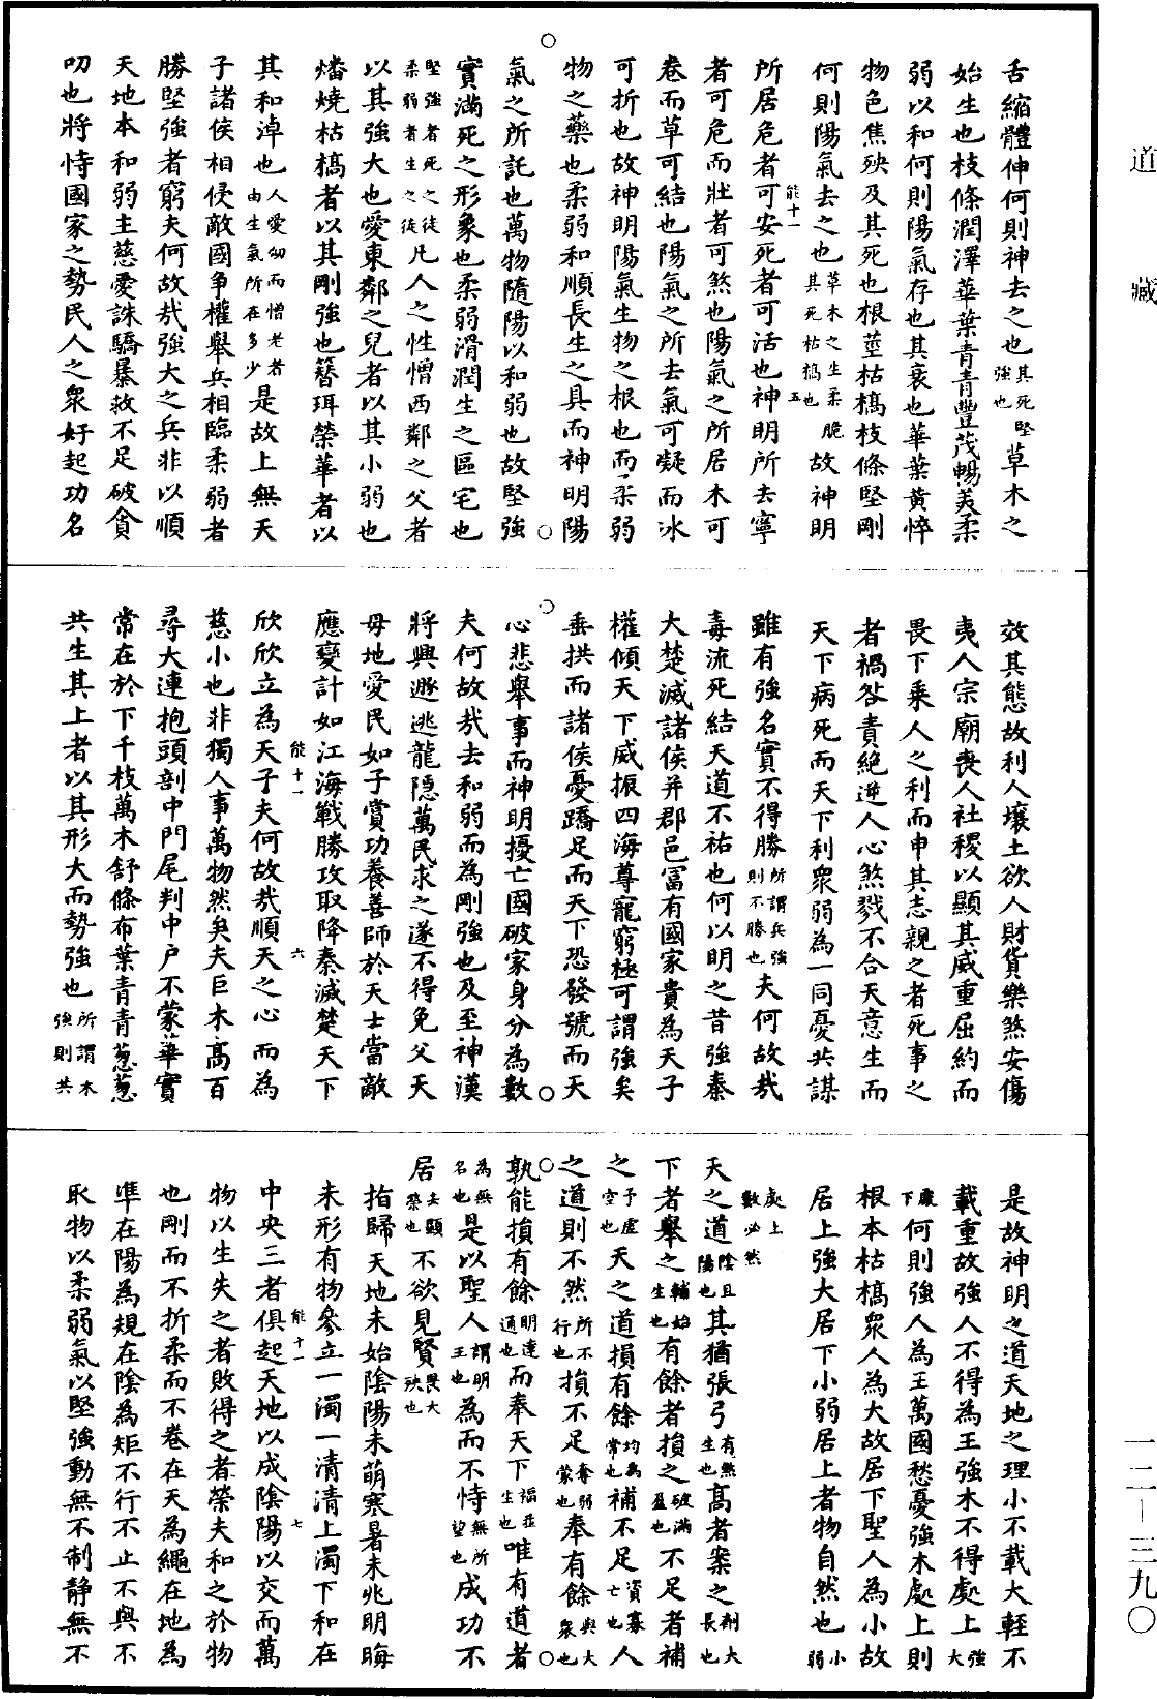 道藏
一二－三九〇
舌縮體伸何則神去之也其死堅強也草木之
始生也枝條潤澤華葉青青豐茂暢美柔
弱以和何則陽氣存也其衰也華葉黃悴
物色焦殃及其死也根莖枯槁枝條堅剛
何則陽氣去之也草木之生柔脆其死枯槁也故神明
能十一 五
所居危者可安死者可活也神明所去寧
者可危而壯者可煞也陽氣之所居木可
卷而草可結也陽氣之所去氣可凝而冰
可折也故神明陽氣生物之根也而柔弱
物之藥也柔弱和順長生之具而神明陽
氣之所託也萬物隨陽以和弱也故堅強
實滿死之形象也柔弱滑潤生之區宅也
堅強者死之徒柔弱者生之徒凡人之性憎西鄰之父者
以其強大也愛東鄰之兒者以其小弱也
燔燒枯槁者以其剛強也簪珥榮華者以
其和淖也人愛幼而憎老者由生氣所在多少是故上無天
子諸侯相侵敵國爭權舉兵相臨柔弱者
勝堅強者窮夫何故哉強大之兵非以順
天地本和弱主慈愛誅驕暴救不足破貪
叨也將恃國家之勢民人之衆好起功名
效其態故利人壤土欲人財貨樂煞安傷
夷人宗廟喪人社稷以顯其威重屈約而
畏下乘人之利而申其志親之者死事之
者禍咎責絕進人心煞戮不合天意生而
天下病死而天下利衆弱為一同憂共謀
雖有強名實不得勝所謂兵強則不勝也夫何故哉
毒流死結天道不祐也何以明之昔強秦
大楚滅諸侯并郡邑冨有國家貴為天子
權傾天下威振四海尊寵窮極可謂強矣
垂拱而諸侯憂蹻足而天下恐發號而天
心悲舉事而神明擾亡國破家身分為數
夫何故哉去和弱而為剛強也及至神漢
將興遯逃龍隱萬民求之遂不得免父天
母地愛民如子賞功養善師於天士當敵
應變計如江海戰勝攻取降秦滅楚天下
欣欣立為天子夫何故哉順天之心而為
能十一 六
慈小也非獨人事萬物然矣夫巨木高百
尋大連抱頭剖中門尾判中戶不蒙華實
常在於下千枝萬木舒條布葉青青蔥蔥
共生其上者以其形大而勢強也所謂木強則共
是故神明之道天地之理小不載大輕不
載重故強人不得為王強木不得處上強大
處下何則強人為王萬國愁憂強木處上則
根本枯槁衆人為大故居下聖人為小故
居上強大居下小弱居上者物自然也小弱
處上數必然
天之道陰且陽也其猶張弓有煞生也高者案之削大長也
下者舉之輔始生也有餘者損之破滿盈也不足者補
之予虛空也天之道損有餘均為常也補不足資寡亡也人
之道則不然所不行也損不足奪弱蒙也奉有餘與大衆也
孰能損有餘明達通也而奉天下福並生也唯有道者
為無名也是以聖人謂明王也為而不恃無所望也成功不
居去顯榮也不欲見賢畏大殃也
指歸天地未始陰陽未萌寒暑未兆明晦
未形有物參立一濁一清清上濁下和在
中央三者俱起天地以成陰陽以交而萬
能十一 七
物以生失之者敗得之者榮夫和之於物
也剛而不折柔而不卷在天為繩在地為
準在陽為規在陰為矩不行不止不與不
取物以柔弱氣以堅強動無不制靜無不